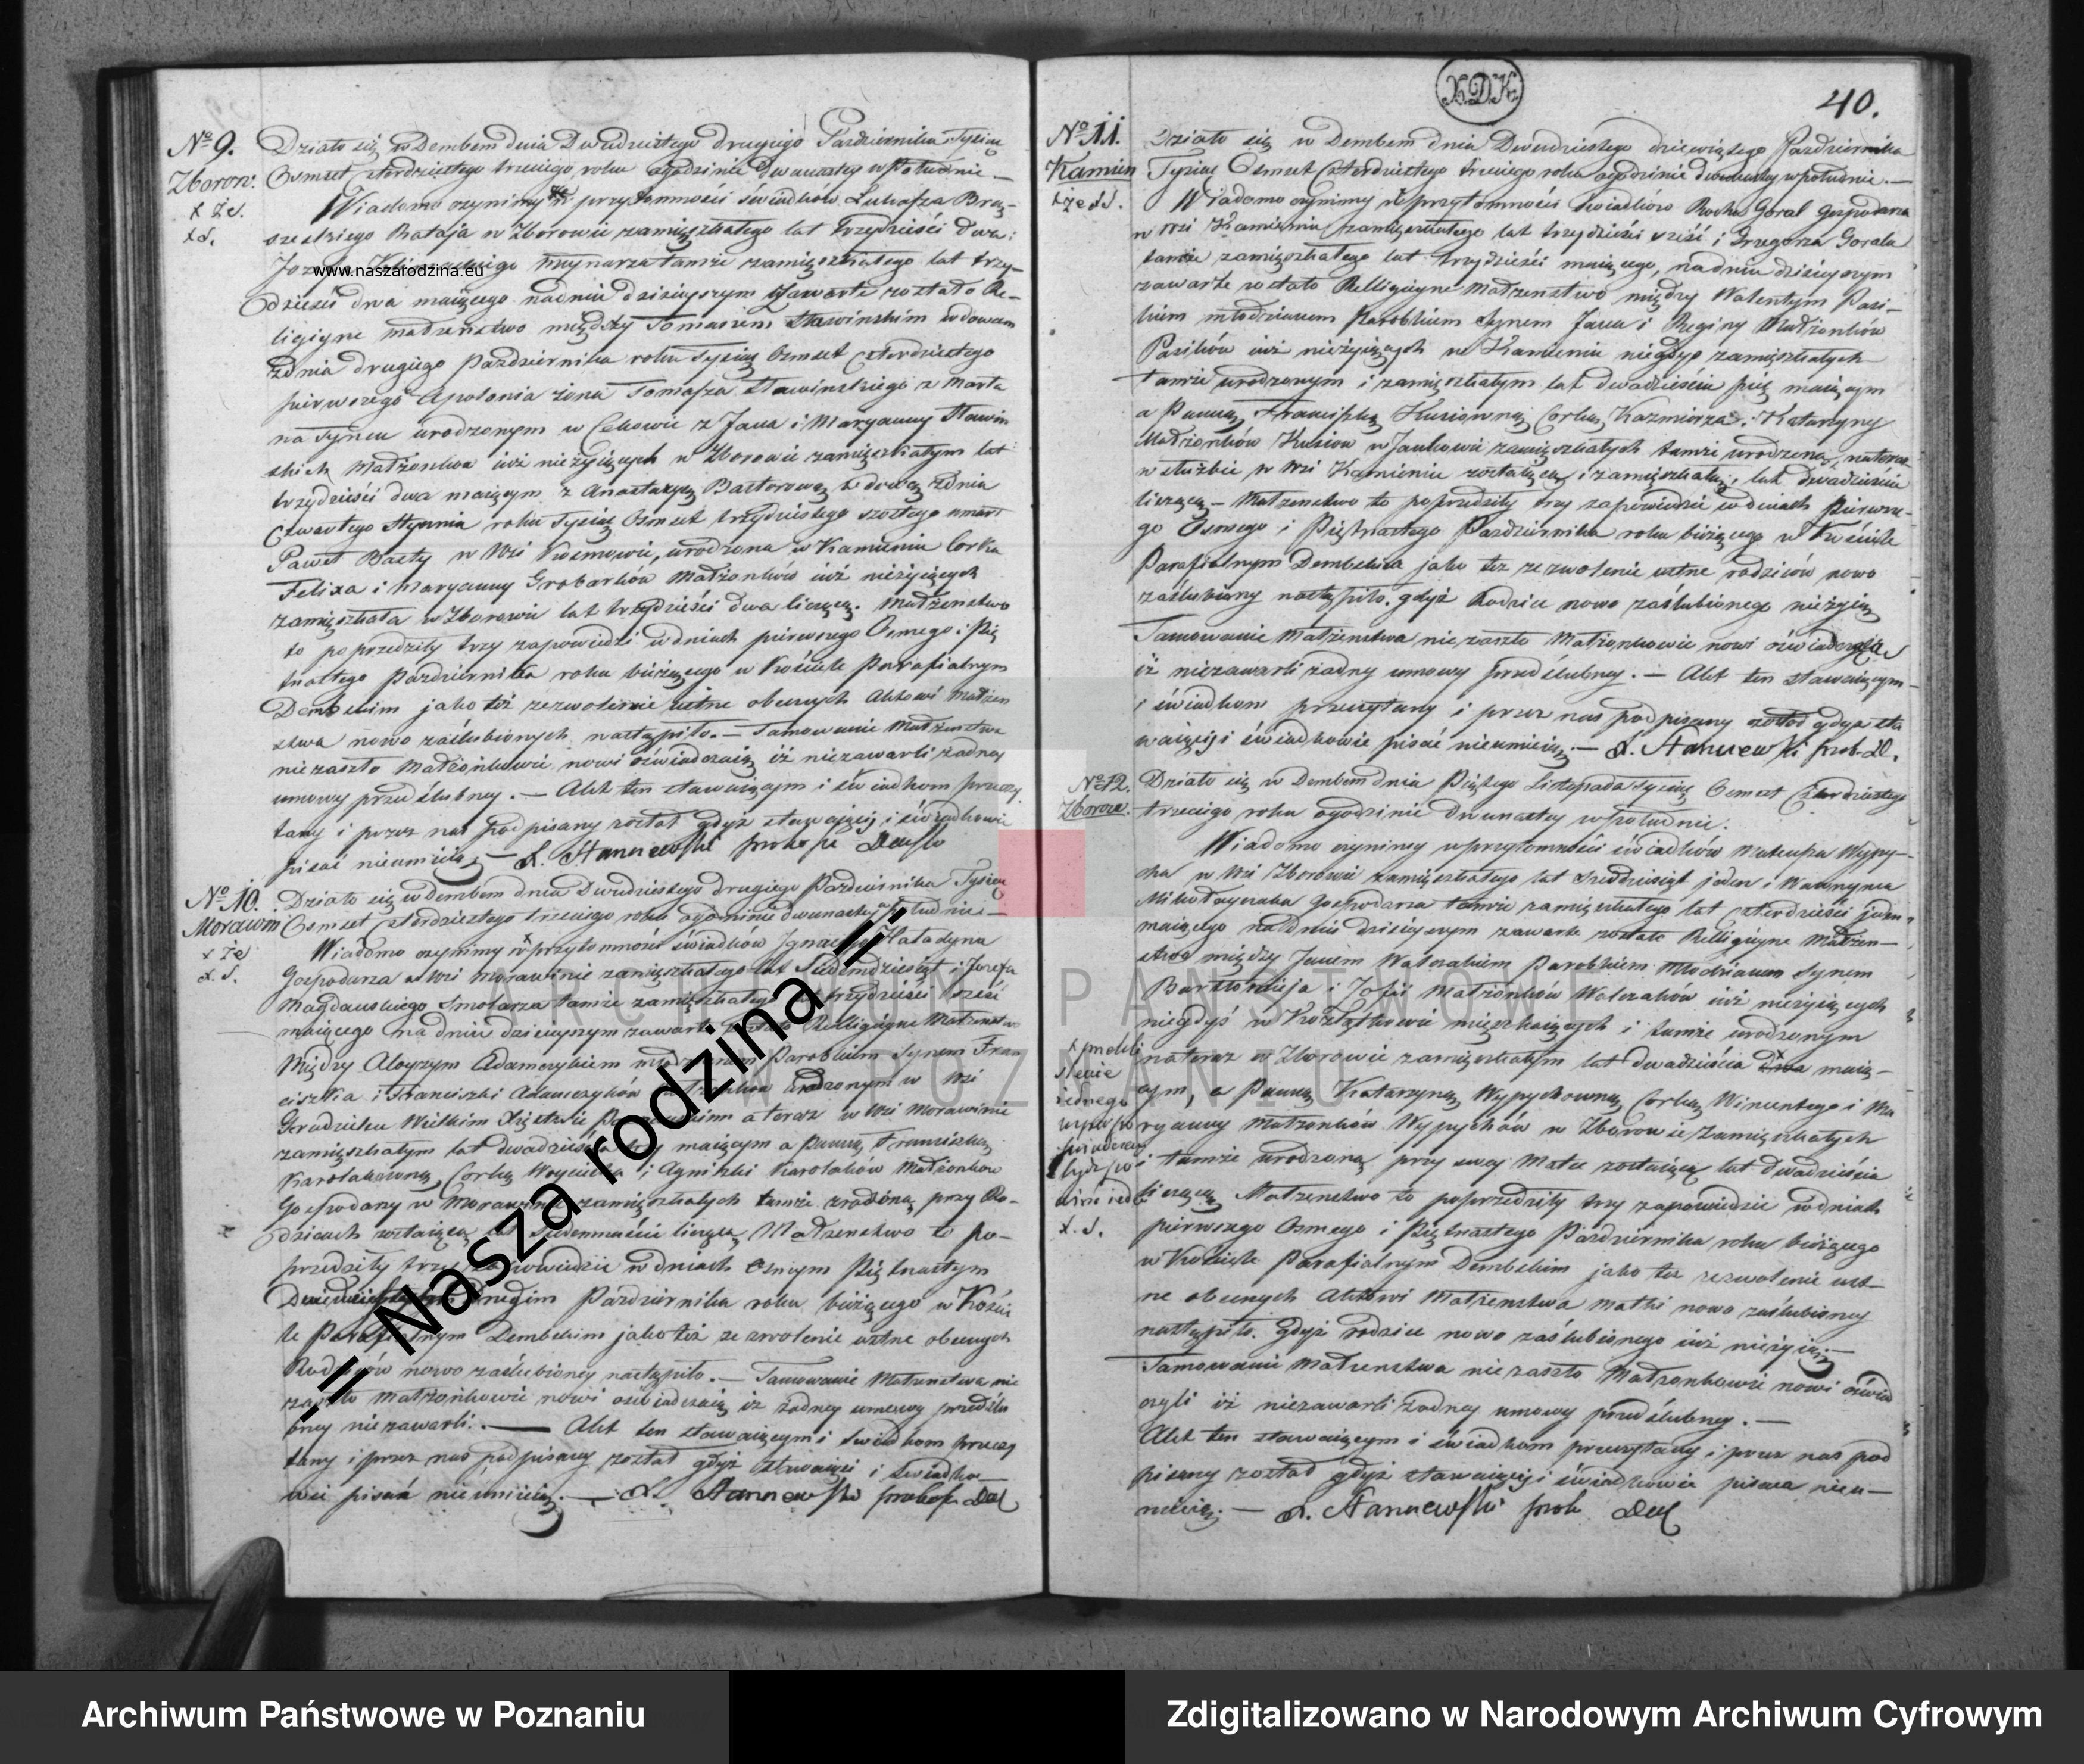 No 9.
Zborow.
x że.
x S.
Działo się w Dembem dnia Dwudziestego drugiego Października Tysiąc
Osmset czterdziestego trzeciego roku ogodzinie dwunastey w Południe —
Wiadomo czynimy w przytomności świadków Łukasza Brze-
zeskiego Rataja w Zborowie zamięszkałego lat trzydzieści dwa i
Józefa młynarza tamże zamięszkałego lat trzy-
dzieści dwa maiącego nadniu dzisieyszym zawarte zostało Re-
ligijne małżeństwo między Tomaszem Sławinskim wdowcem
zdnia drugiego Października roku Tysiąc Osmset Czterdziestego
pierwszego Apolonia żona Tomasza Sławinskiego zmarła
na Synem urodzonym w Cekowie z Jana i Maryanny Sławin
skich Małżonków iuż nieżyiących w Zborowie zamięszkałym lat
trzydzieści dwa maiącym z Anastazyą Bartorową wdową zdnia
Czwartego Stycznia roku Tysiąc Osmset trzydziestego szostego umarł
Paweł w Wsi Kosmowie, urodzona w Kamieniu Corka
Felixa i Maryanny Grobarków Małżonków iuż nieżyiących
zamięszkała w Zborowie lat trzydzieści dwa licząca. Małżeństwo
to poprzedziły trzy zapowiedzi wdniach pierwszego Osmego i Pię
tnastego Października roku bieżącego w Kościele Parafialnym
Dembskim jako też zezwolenie ustne obecnych Aktowi Małżen
stwa nowo zaślubionych nastąpiło. — Tamowanie Małżeństwa
niezaszło Małżonkowie nowi oświadczaią iż niezawarli żadney
umowy przedślubney. — Akt ten stawaiącym i świadkom przeczy
tany i przez nas podpisany został gdyż stawaiący i świadkowie
pisać nieumieią. — X. Stanczewski probosz Dembs
No 10.
Morawin
x że
x. S.
Działo się w Dembem dnia Dwudziestego drugiego Października Tysiąc
Osmset czterdziestego trzeciego roku ogodzinie dwunastey w Południe —
Wiadomo czynimy w przytomności świadków Ignacego Haładyna
Gospodarza w Wsi Morawinie zamięszkałego lat Siedmdziesiąt i Jozefa
Magdanskiego Smolarza tamże zamięszkałego lat trzydzieści sześć
maiącego na dniu dzisieyszym zawarte zostało Religijne Małżeństwo
Między Aloyzym Adamczykiem młodzianem Parobkiem Synem Fran
ciszka i Franciszki Adamczyków Małżonków urodzonym w Wsi
Wielkim Xięstwie Poznanskim a teraz w Wsi Morawinie
zamięszkałym lat dwadzieścia trzy maiącym a Panną Franciszką
Karolakówną Corką Woyciecha i Agniszki Karolaków Małżonków
Gospodarzy w Morawinie zamięszkałych tamże zrodzoną przy Ro-
dzicach zostaiącą lat Siedemnaście liczącą, Małżeństwo to po-
przedziły trzy zapowiedzie w dniach Osmym Piętnastym
drugim Października roku bieżącego w Koście
le Parafialnym Dembskim jako też zezwolenie ustne obecnych
Rodziców nowo zaślubioney nastąpiło. — Tamowanie Małżeństwa nie
zaszło Małżonkowie nowi oświadczaią iż żadney umowy przedślu
bney niezawarli. — Akt ten stawaiącym i świadkom przeczy
tany i przez nas podpisany został gdyż stawaiący i świadko-
wie pisać nieumieią. — X. Stanczewski probosz Dem
XDK
40.
No 11.
Kamień
x że x S.
Działo się w Dembem dnia Dwudziestego dziewiątego Października
Tysiąc Osmset Czterdziestego trzeciego roku ogodzinie dwunastey w południe. —
Wiadomo czynimy w przytomności świadków Rocha Goral Gospodarza
w Wsi Kamieniu zamięszkałego lat trzydzieści sześć i Grzegorza Gorala
tamże zamięszkałego lat trzydzieści maiącego, na dniu dzisieyszym
zawarte zostało Relligijne Małżeństwo między Walentym Pasi-
kiem młodzianem Parobkiem Synem Jana i Reginy Małżonków
Pasików iuż nieżyiących w Kamieniu niegdyś zamięszkałych
tamże urodzonym i zamięszkałym lat dwadzieścia pięć maiącym
a Panną Franciszką Kusiowną Corką Kazmierza i Katarzyny
Małżonków Kusiow w Jankowie zamięszkałych tamże urodzoną, nateraz
w służbie w Wsi Kamieniu zostaiącą i zamięszkałą, lat dwadzieścia
liczącą — Małżenstwo to poprzedziły trzy zapowiedzie w dniach Pierwsze-
go Osmego i Piętnastego Października roku bieżącego w Kościele
Parafialnym Dembskim jako też zezwolenie ustne rodziców nowo
zaślubiony nastąpiło. gdyż Rodzice nowo zaślubionego nieżyią
Tamowanie Małżenstwa niezaszło Małżonkowie nowi oświadczyli
iż niezawarli żadny umowy przedślubney. — Akt ten stawaiącym
i świadkom przeczytany i przez nas podpisany został gdyż sta
waiący i świadkowie pisać nieumieią. — X. Stanczewski prob. D.
No 12.
Zborow.
Działo się w Dembem dnia Piątego Listopada Tysiąc Osmset Czterdziestego
trzeciego roku ogodzinie dwunastey w południe.
Wiadomo czynimy w przytomności świadków Mateusza Wypy-
cha w Wsi Zborowie zamięszkałego lat Sześćdziesiąt jeden i Wawrzyna
Mikołayczaka Gospodarza tamże zamięszkałego lat Czterdzieści jeden
maiącego na dniu dzisieyszym zawarte zostało Relligijne Małżen-
stwo między Janem Walczakiem Parobkiem Młodzianem Synem
Bartłomieja i Zofii Małżonków Walczaków iuż nieżyiących
niegdyś w Koźlątkowie mięszkaiących i tamże urodzonym
nateraz w Zborowie zamięszkałym lat dwadzieścia dwa maią-
cym, a Panną Katarzyną Wypychowną Corką Wincentego i Ma
ryanny Małżonków Wypychów w Zborowie zamięszkałych
i tamże urodzoną przy swey Matce zostaiącą lat dwadzieścia
liczącą Małżenstwo to poprzedziły trzy zapowiedzie w dniach
pierwszego Osmego i Piętnastego Października roku bieżącego
w Kościele Parafialnym Dembskim jako też zezwolenie ust-
ne obecnych Aktowi Małżenstwa matki nowo zaślubioney
nastąpiło. gdyż rodzice nowo zaślubionego iuż nieżyią. —
Tamowanie Małżenstwa niezaszło Małżonkowie nowi oświad
czyli iż niezawarli żadney umowy przedślubney. —
Akt ten stawaiącym i świadkom przeczytany i przez nas pod
pisany został gdyż stawaiący i świadkowie pisania nieu-
mieią. — X. Stanczewski prob. Dem
x. S.
www.naszarodzina.eu
-= Nasza rodzina =-
ARCHIWUM PAŃSTWOWE
W POZNANIU
Archiwum Państwowe w Poznaniu
Zdigitalizowano w Narodowym Archiwum Cyfrowym